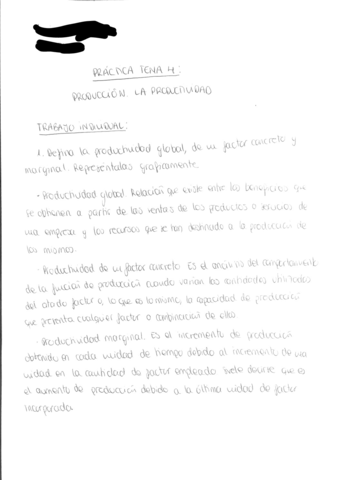 PRÁCTICA TEMA 4:
PRODUCCIÓN. LA PRODUCTIVIDAD
TRABAJO INDIVIDUAL:
1. Defina la productividad global, de un factor concreto y
marginal. Represéntalas gráficamente.
- Productividad global. Relación que existe entre los beneficios que
se obtienen a partir de las ventas de los productos o servicios de
una empresa y los recursos que se han destinado a la producción de
los mismos.
- Productividad de un factor concreto. Es el análisis del comportamiento
de la función de producción cuando varían las cantidades utilizadas
del citado factor o, lo que es lo mismo, la capacidad de producción
que presenta cualquier factor o combinación de ellos.
- Productividad marginal. Es el incremento de producción
obtenido en cada unidad de tiempo debido al incremento de una
unidad en la cantidad de factor empleado. Suele decirse que es
el aumento de producción debido a la última unidad de factor
incorporada.